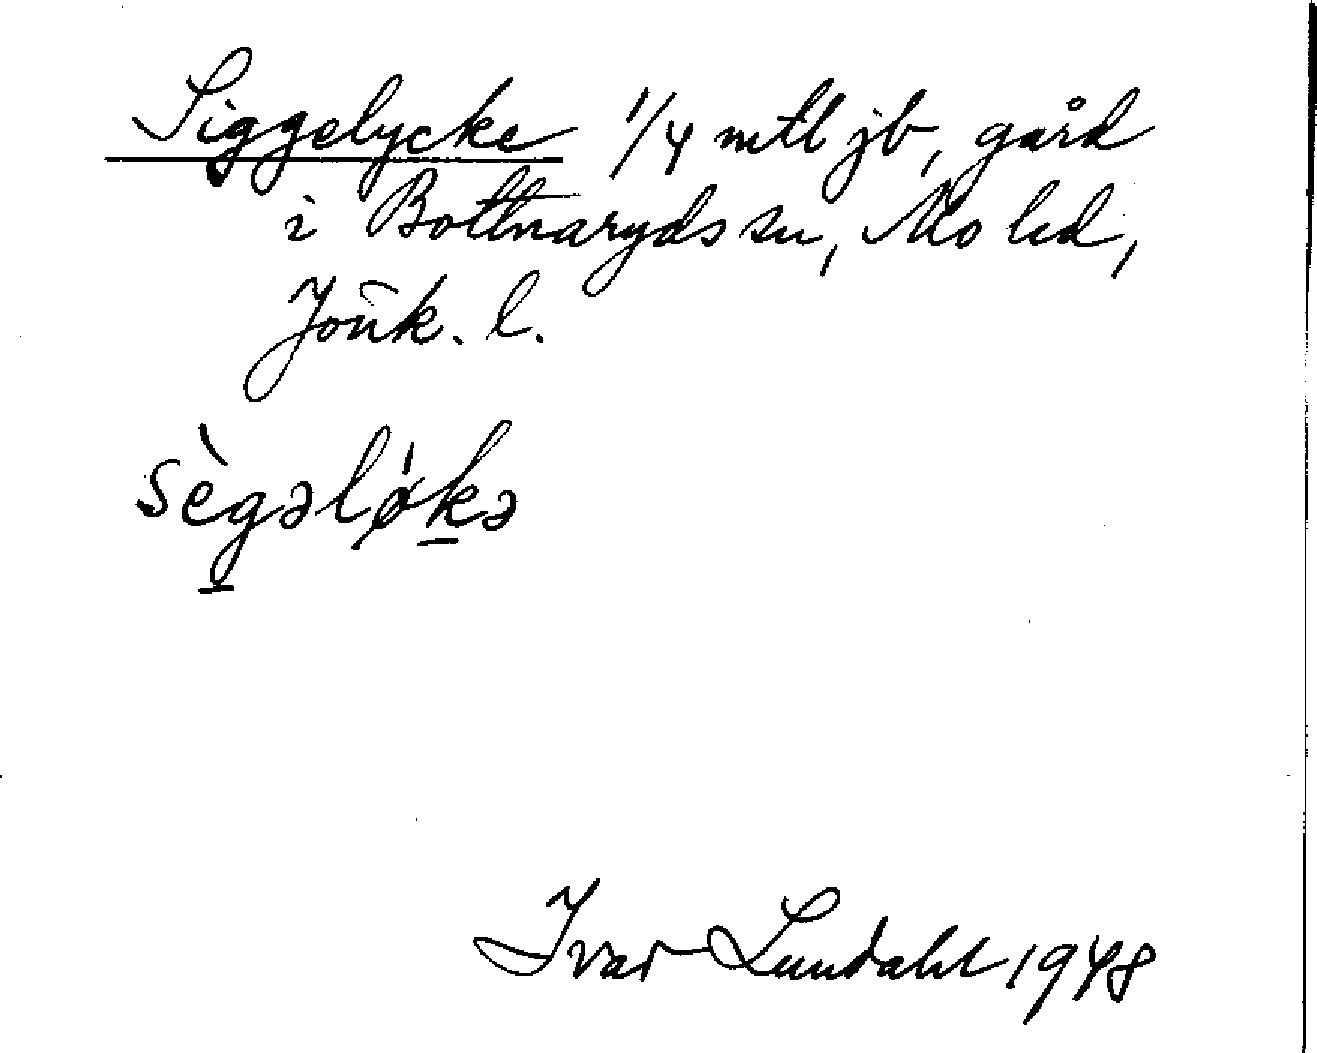 Siggelycke 1/4 mtl jb, gård
i Bottnaryds sn, Mo hd,
Jönk. l.
sègəlø̀kə
Ivar Lundahl 1948